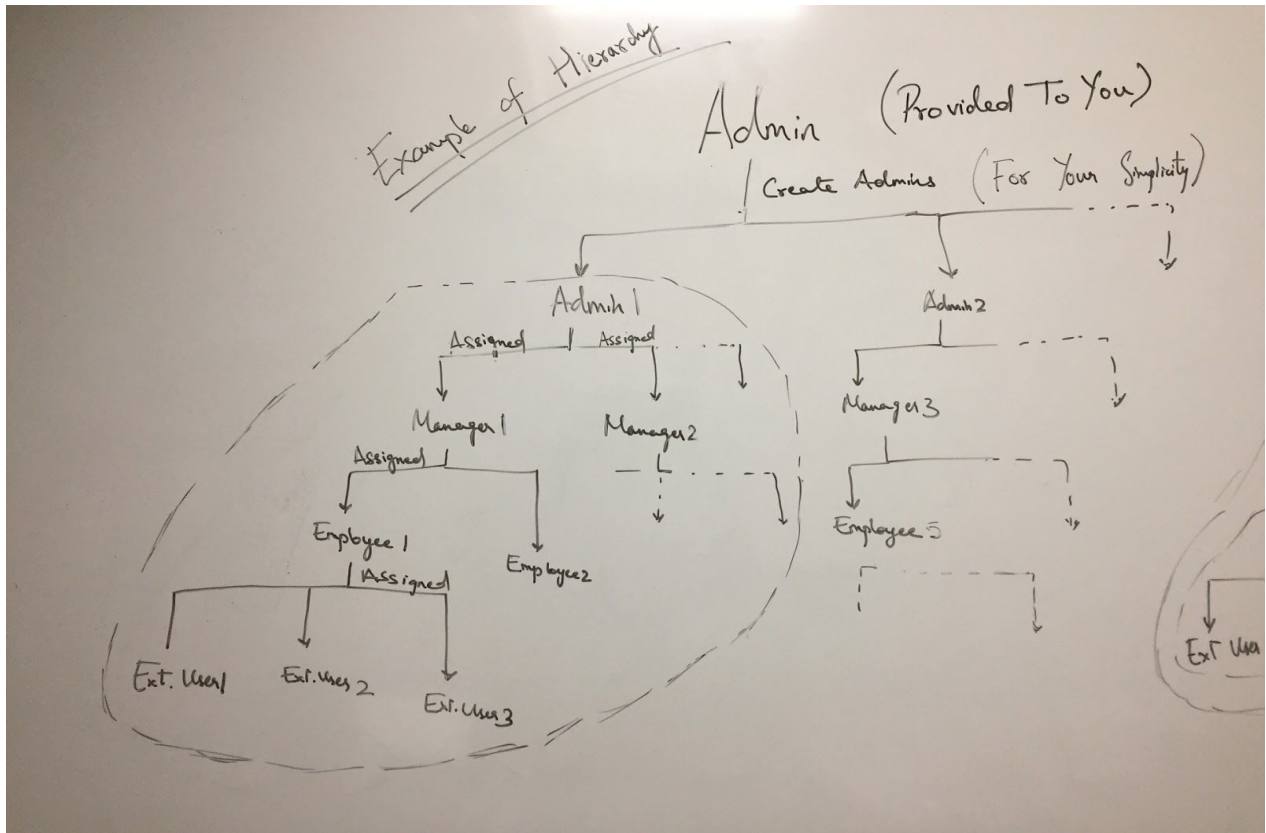 Example of Hierarchy
Admin (Provided To You)
Create Admins (For Your Simplicity)
Admin 1
Admin 2
Assigned Assigned
Manager 1
Manager 2
Manager 3
Assigned
Employee 1
Employee 2
Employee 5
Assigned
Ext. User 1
Ext. User 2
Ext. User 3
Ext User